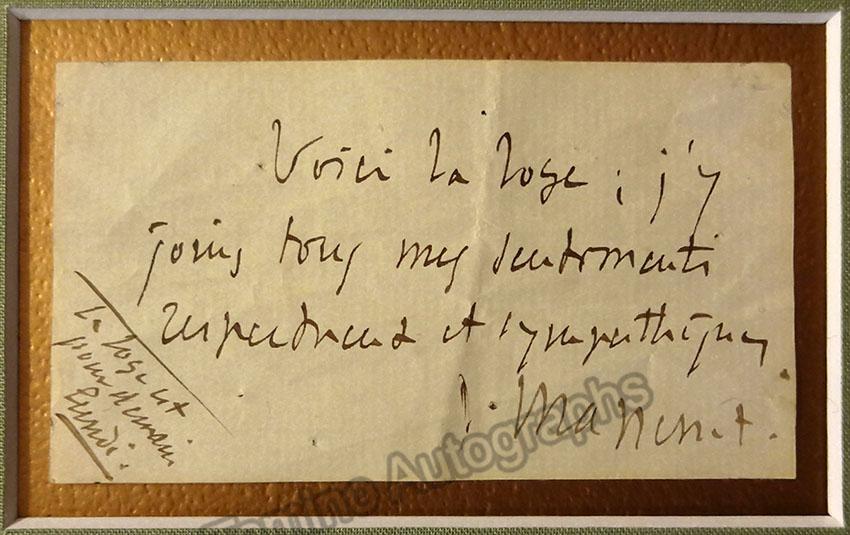 Voici la loge ; j'y
joins tous mes sentiments
respectueux et sympathiques
J. Massenet.
La loge est
pour demain
Lundi.
Tamino Autographs